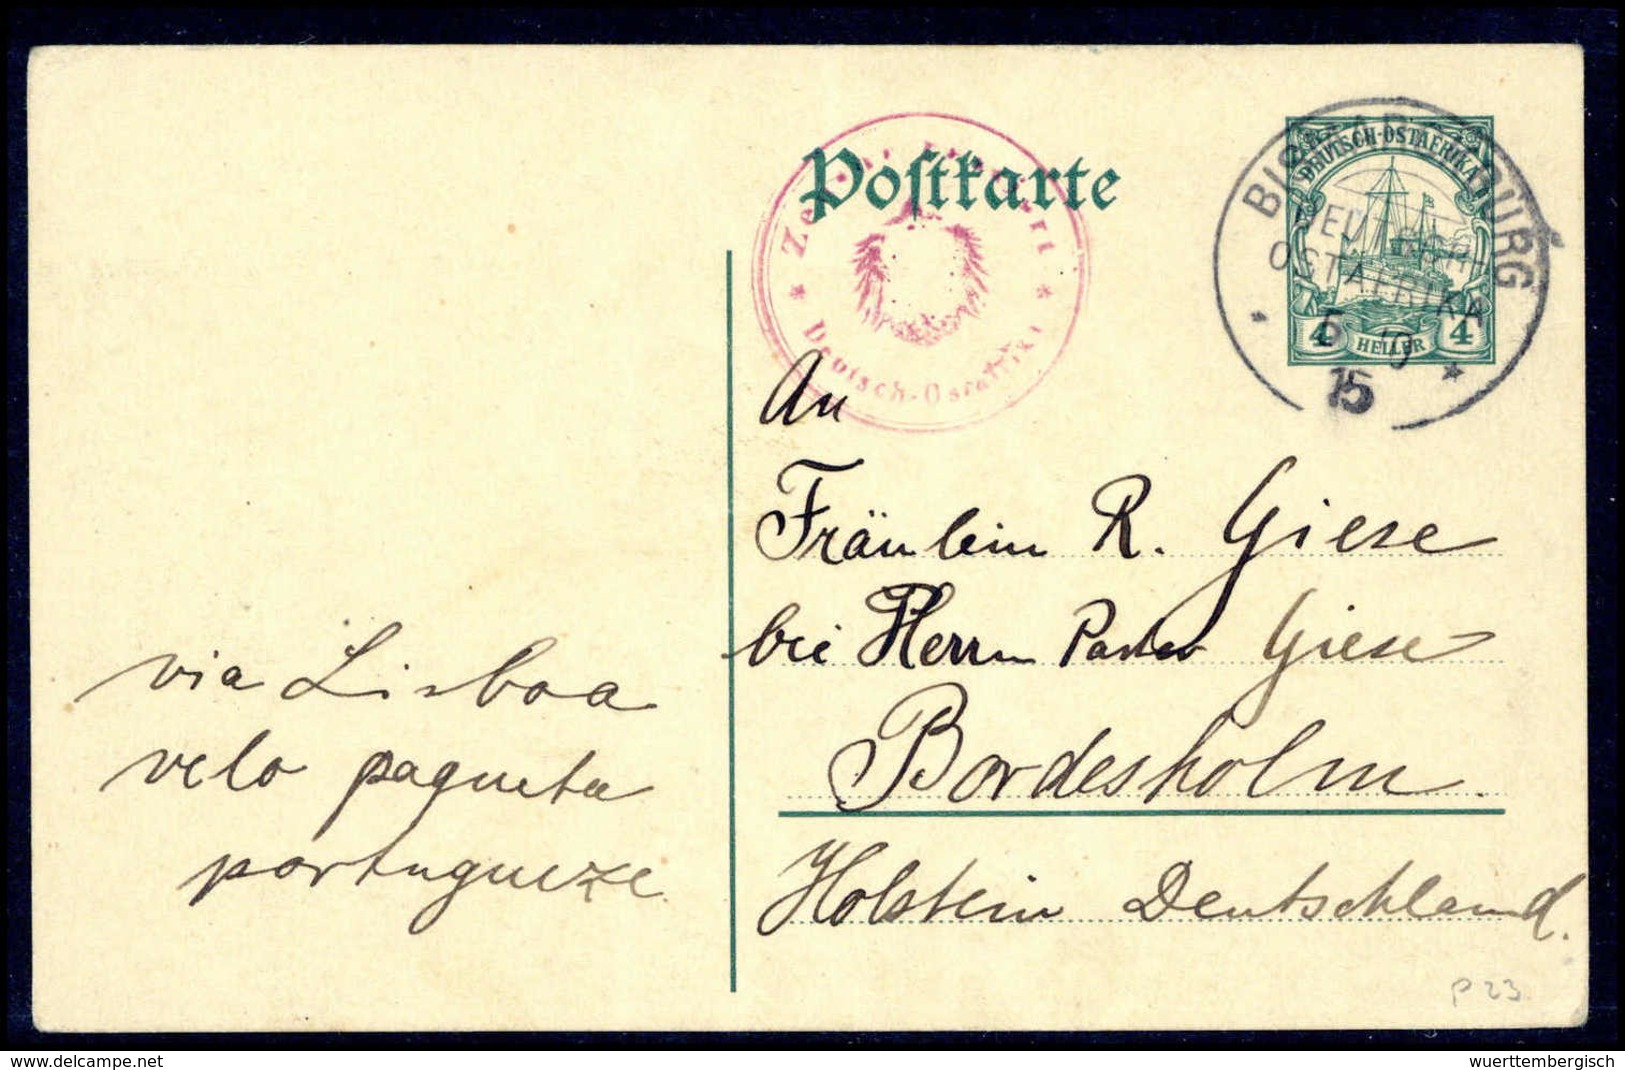 Postkarte
BISMARCKBURG
DEUTSCH
OSTAFRIKA
5 10
15
DEUTSCH-OSTAFRIKA
4 HELLER 4
Deutsch-Ostafrika
An
Fräulein R. Giese
bei Herrn Pastor Giese
Bordesholm.
Holstein Deutschland.
via Lisboa
velo paqueta
portugueze
P 23
www.delcampe.net
wuerttembergisch